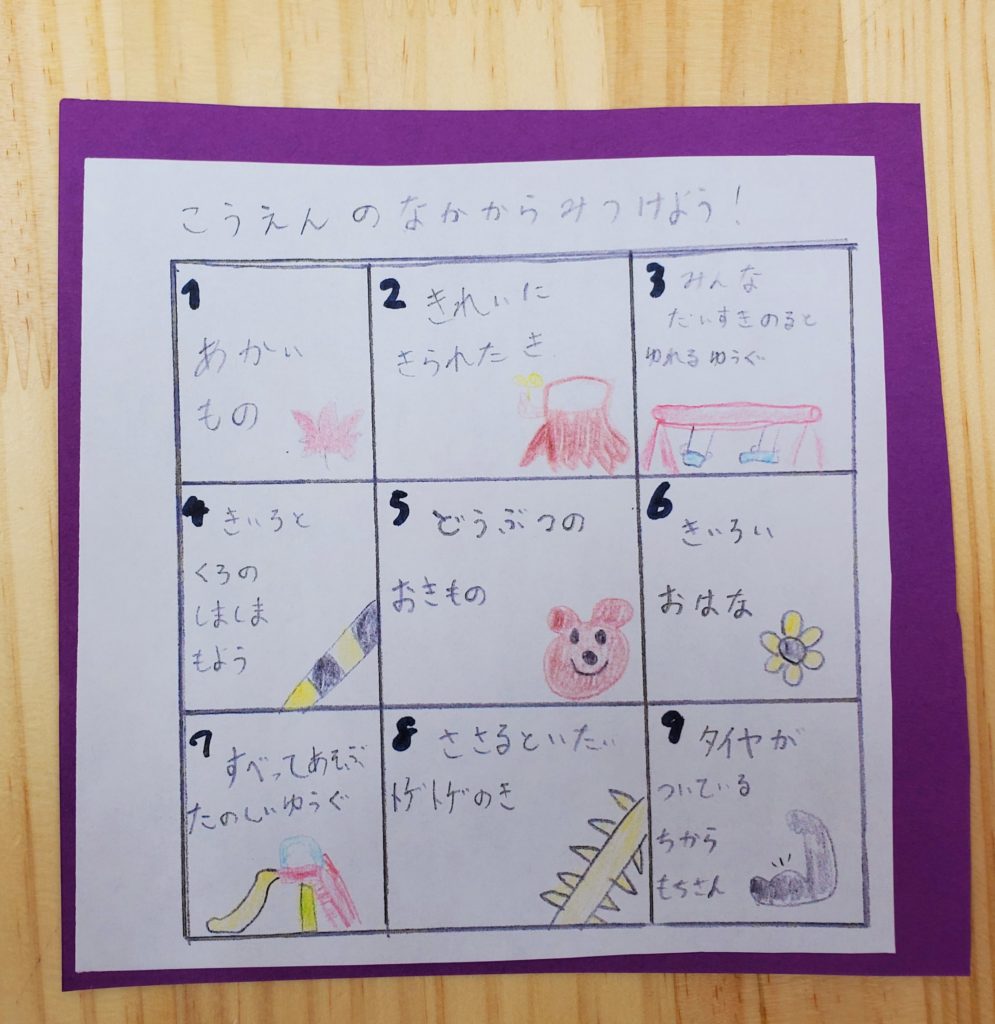 こうえんのなかからみつけよう!
1
あかい
もの
2
きれいに
きられたき
3
みんな
だいすきのると
ゆれるゆうぐ
4
きいろと
くろの
しましま
もよう
5
どうぶつの
おきもの
6
きいろい
おはな
7
すべってあそぶ
たのしいゆうぐ
8
ささるといたい
トゲトゲのき
9
タイヤが
ついている
ちから
もちさん